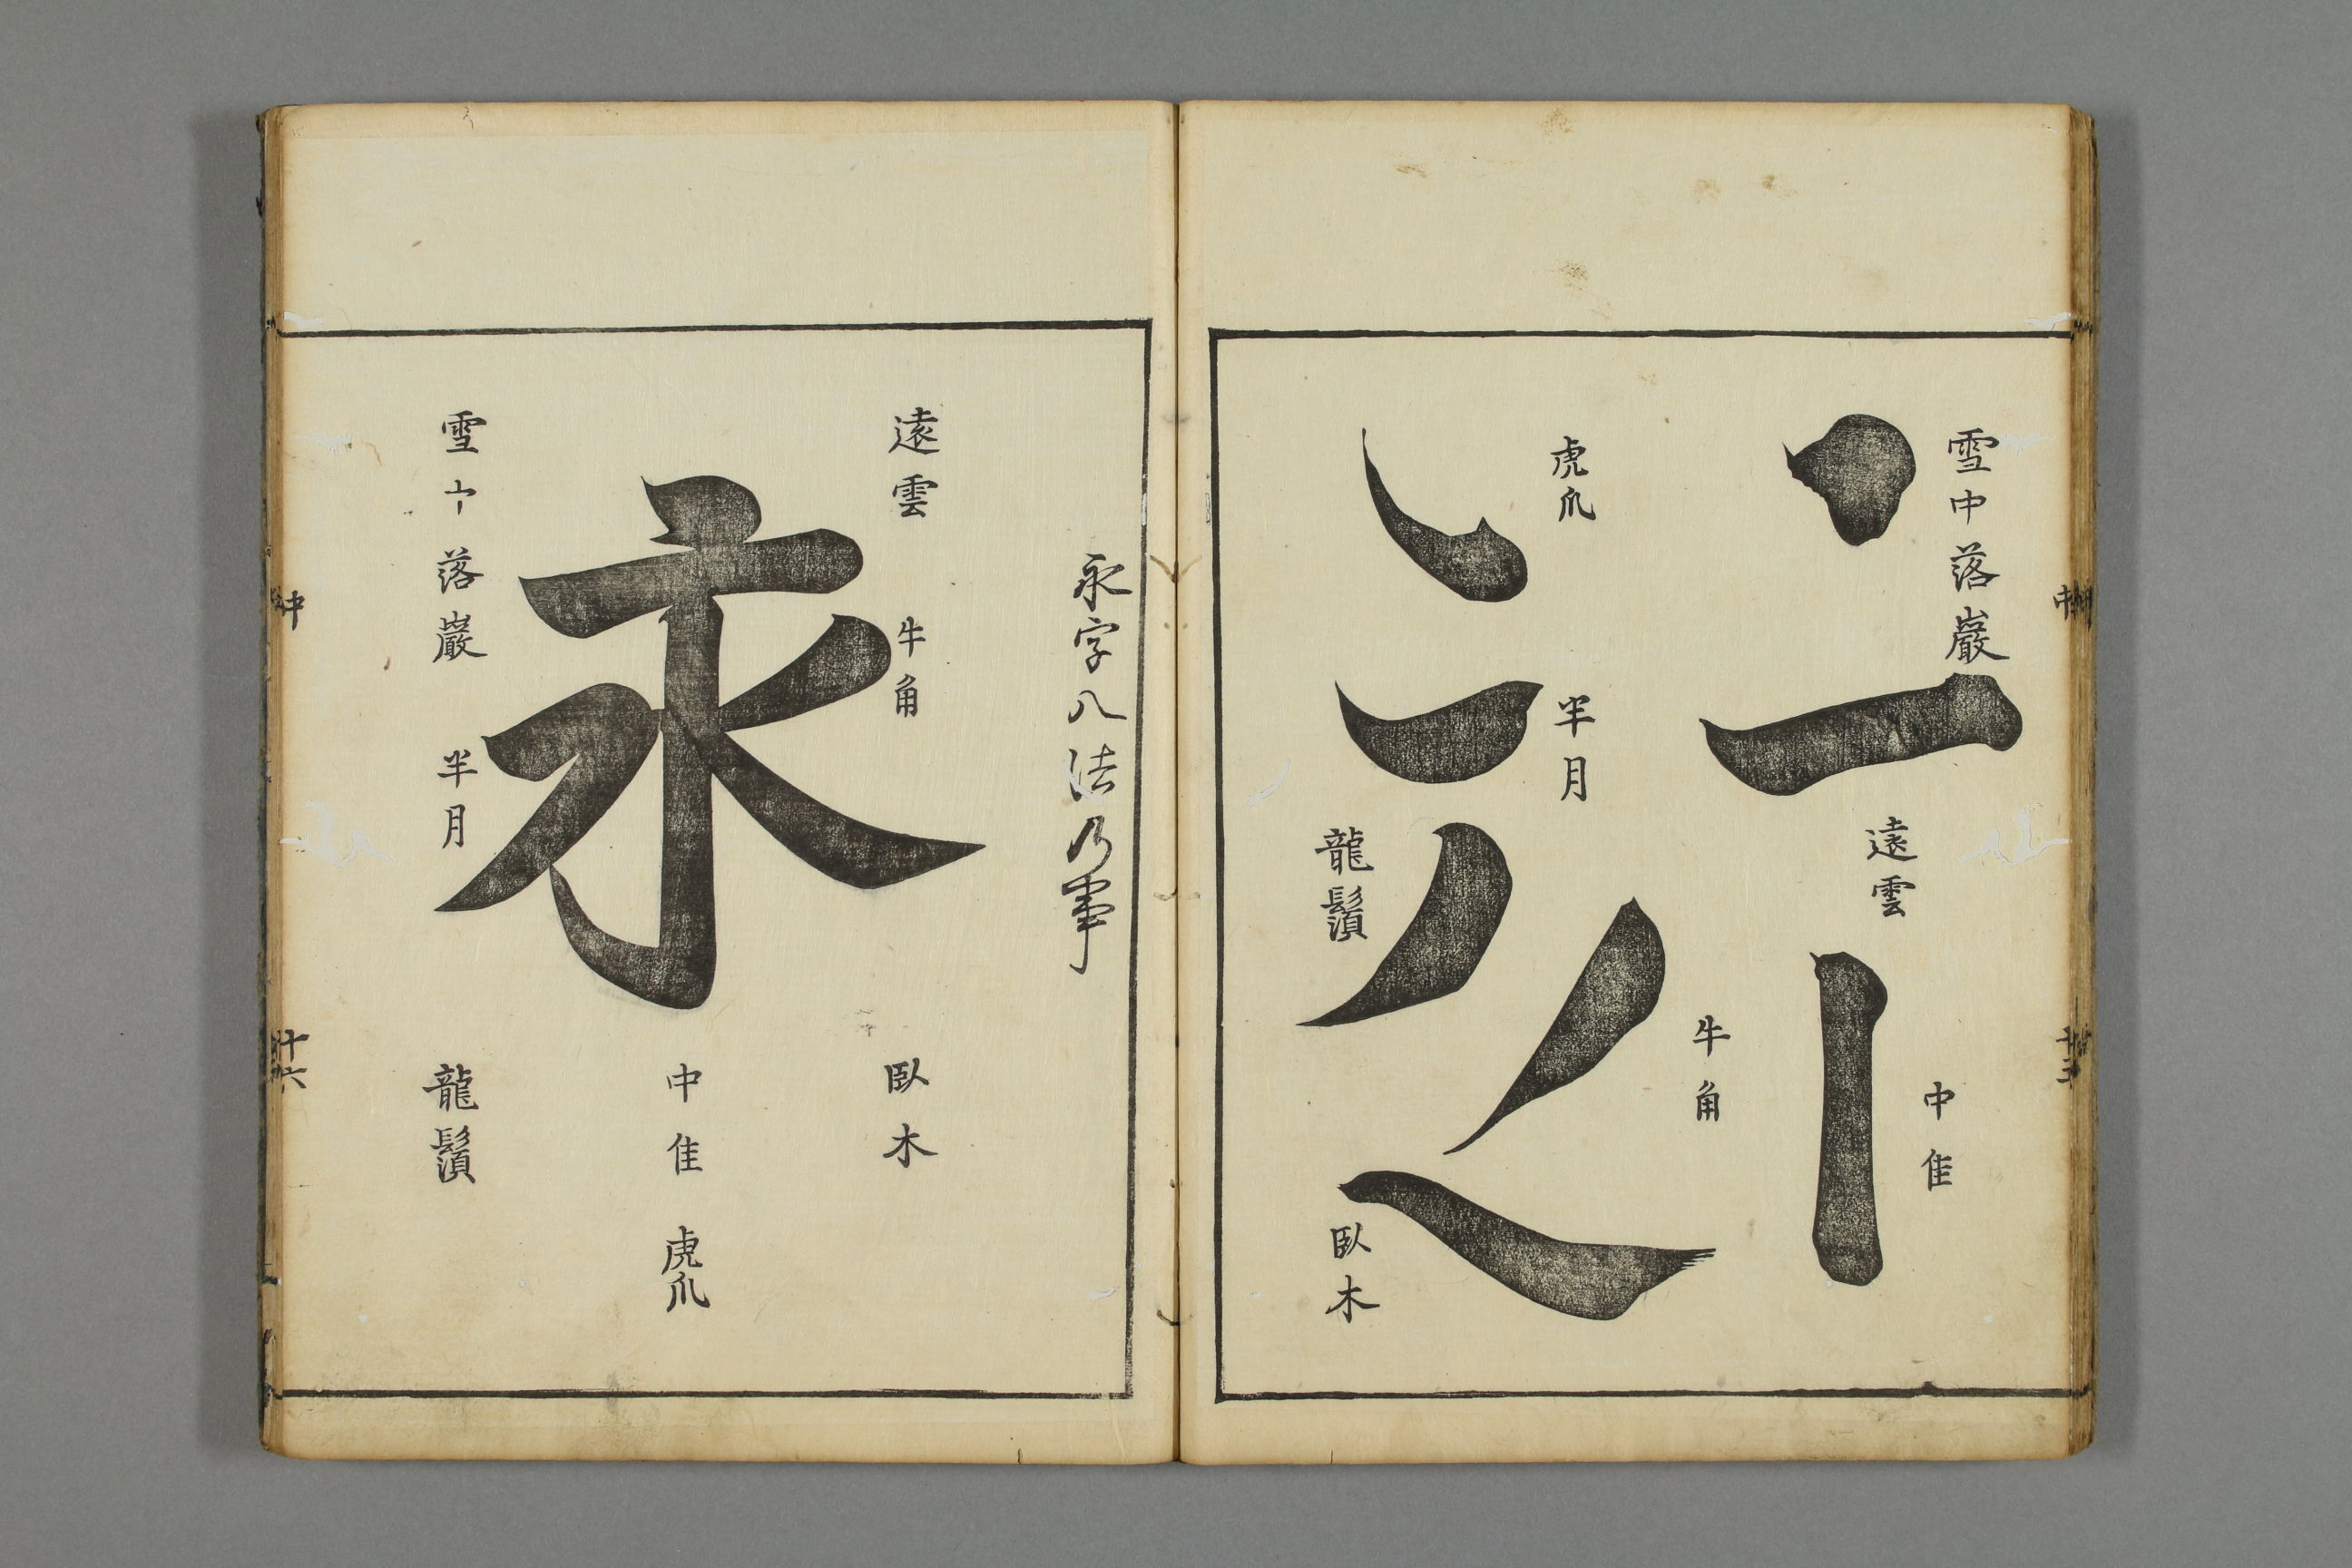 雪中落巖
遠雲
中隹
虎爪
半月
牛角
龍鬚
臥木
永字八法乃事
遠雲
牛角
臥木
永
中隹
虎爪
雪中落巖
半月
龍鬚
中
十六